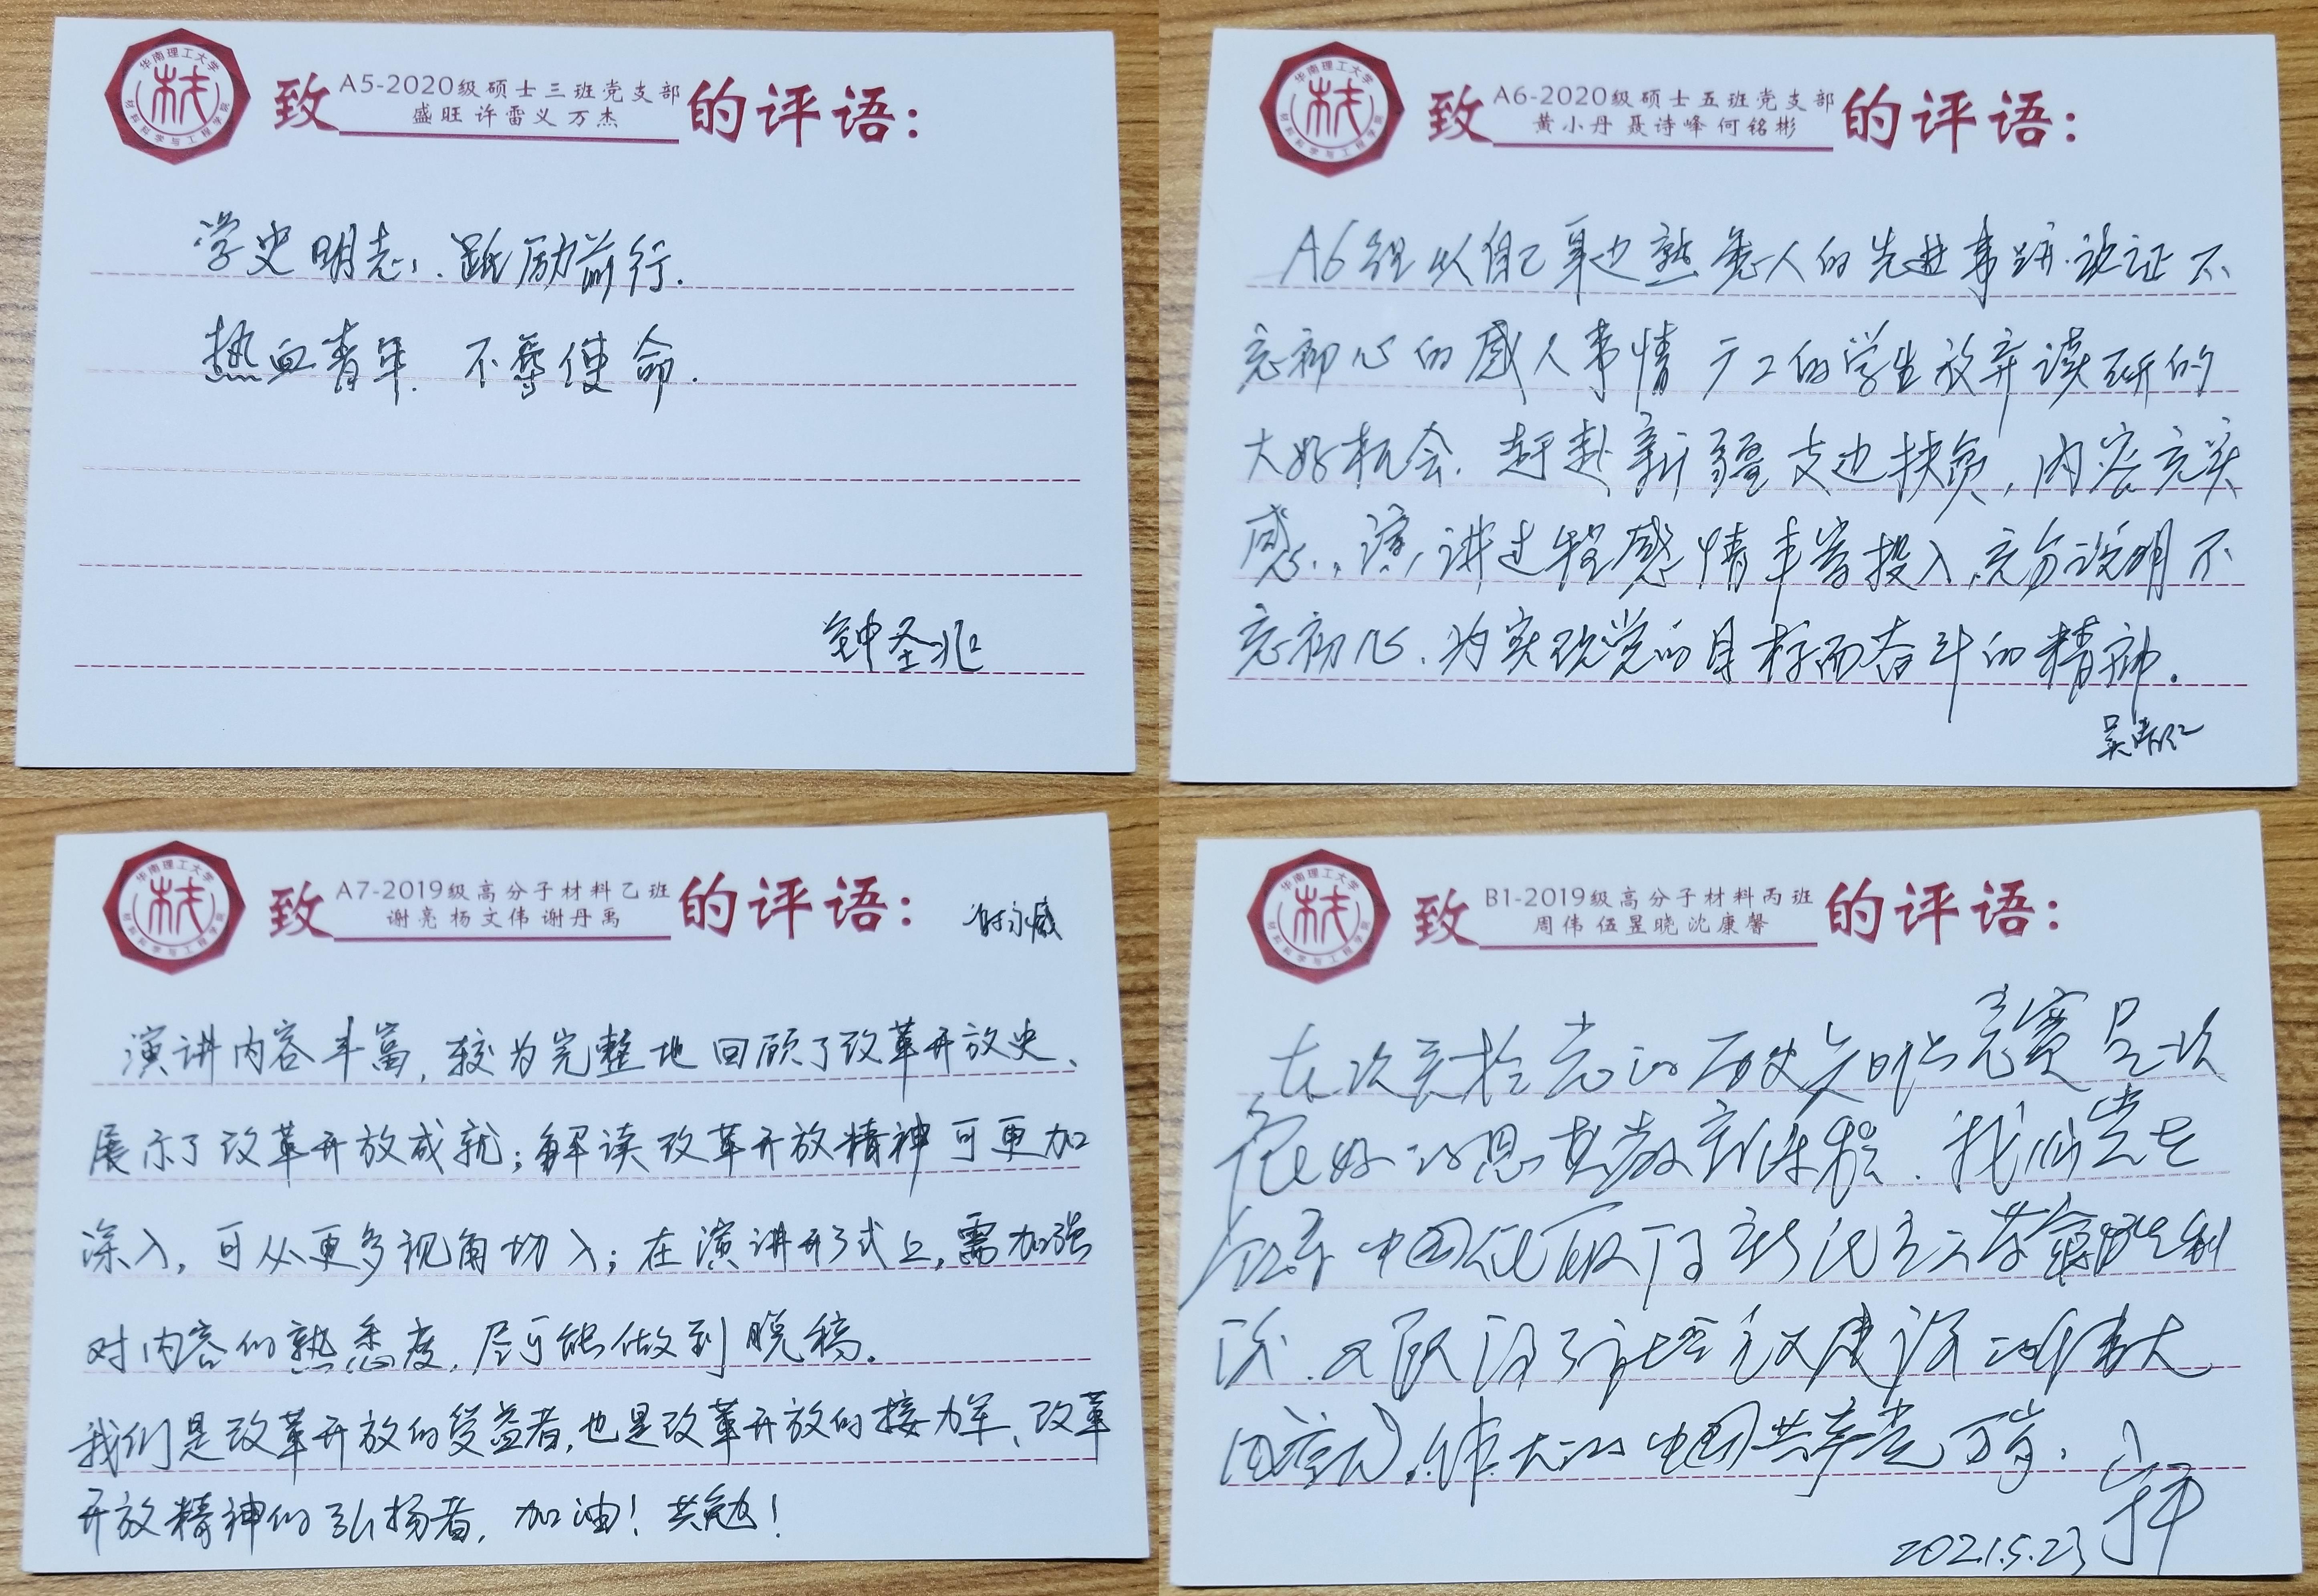 华南理工大学
材
材料科学与工程学院
致 A5-2020级硕士三班党支部 的评语：
盛旺 许雷义 万杰
学史明志，踔厉前行.
热血青年. 不辱使命.
钟圣兆
华南理工大学
材
材料科学与工程学院
致 A6-2020级硕士五班党支部 的评语：
黄小丹 聂诗峰 何铭彬
A6组以自己身边熟悉人的先进事迹.论证不
忘初心的感人事情 广工的学生放弃读研的
大好机会. 赶赴新疆支边扶贫, 内容充实
感, 演讲过程感情丰富投入,充分说明不
忘初心. 为实现党的目标而奋斗的精神.
华南理工大学
材
材料科学与工程学院
致 A7-2019级高分子材料乙班 的评语：
谢亮 杨文伟 谢丹禹
演讲内容丰富, 较为完整地回顾了改革开放史、
展示了改革开放成就; 解读改革开放精神可更加
深入, 可从更多视角切入; 在演讲形式上, 需加强
对内容的熟悉度, 尽可能做到脱稿。
我们是改革开放的受益者,也是改革开放的接力军、改革
开放精神的弘扬者, 加油! 共勉!
华南理工大学
材
材料科学与工程学院
致 B1-2019级高分子材料丙班 的评语：
周伟 伍昱晓 沈康馨
党的历史 竞赛是一次
好的思 教 课程. 我们党
中国 取得新民主主义革命胜利
又取得了社会主义建设的伟大
伟大的中国共产党万岁.
2021.5.23